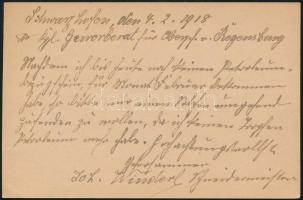 Schwarzhofen, den 4. 2. 1918
kgl. Gewerberat für Oberpf. u. Regensburg
Nachdem ich bis heute noch keinen Petroleum-
für Monat Februar bekommen
habe so bitte
zusenden zu wollen, da ich keinen Tropfen
Petroleum mehr habe. Hochachtungsvollst
Gehorsammer
Joh. Winderl Schneidermeister